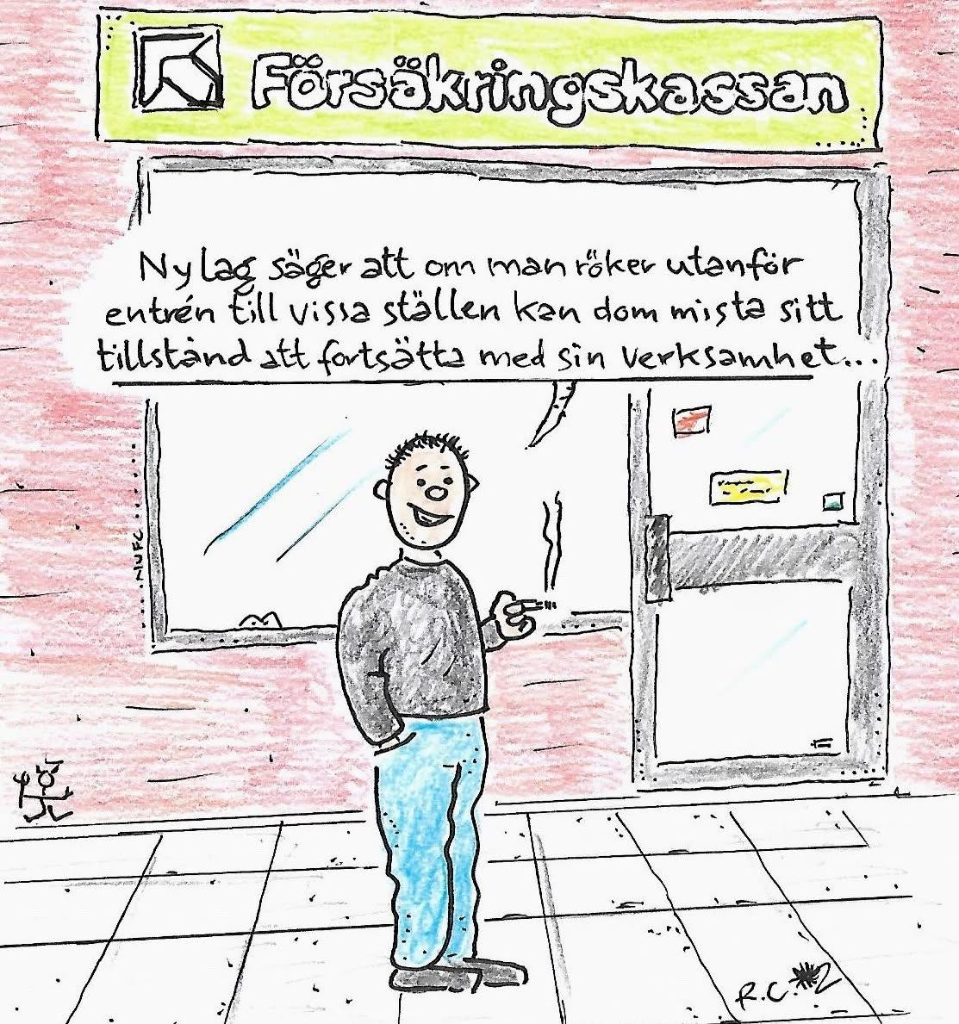 Försäkringskassan
Ny lag säger att om man röker utanför
entrén till vissa ställen kan dom mista sitt
tillstånd att fortsätta med sin verksamhet...
MUFC
R.C.